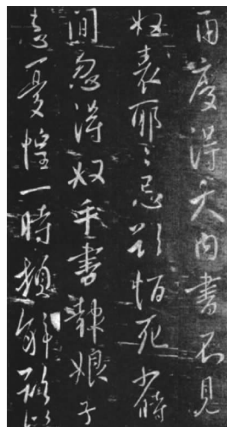 兩度得大内書不見
奴表耶〻忌欲恒死少時
間忽得奴手書報娘子
患憂惶一時頓解欲似